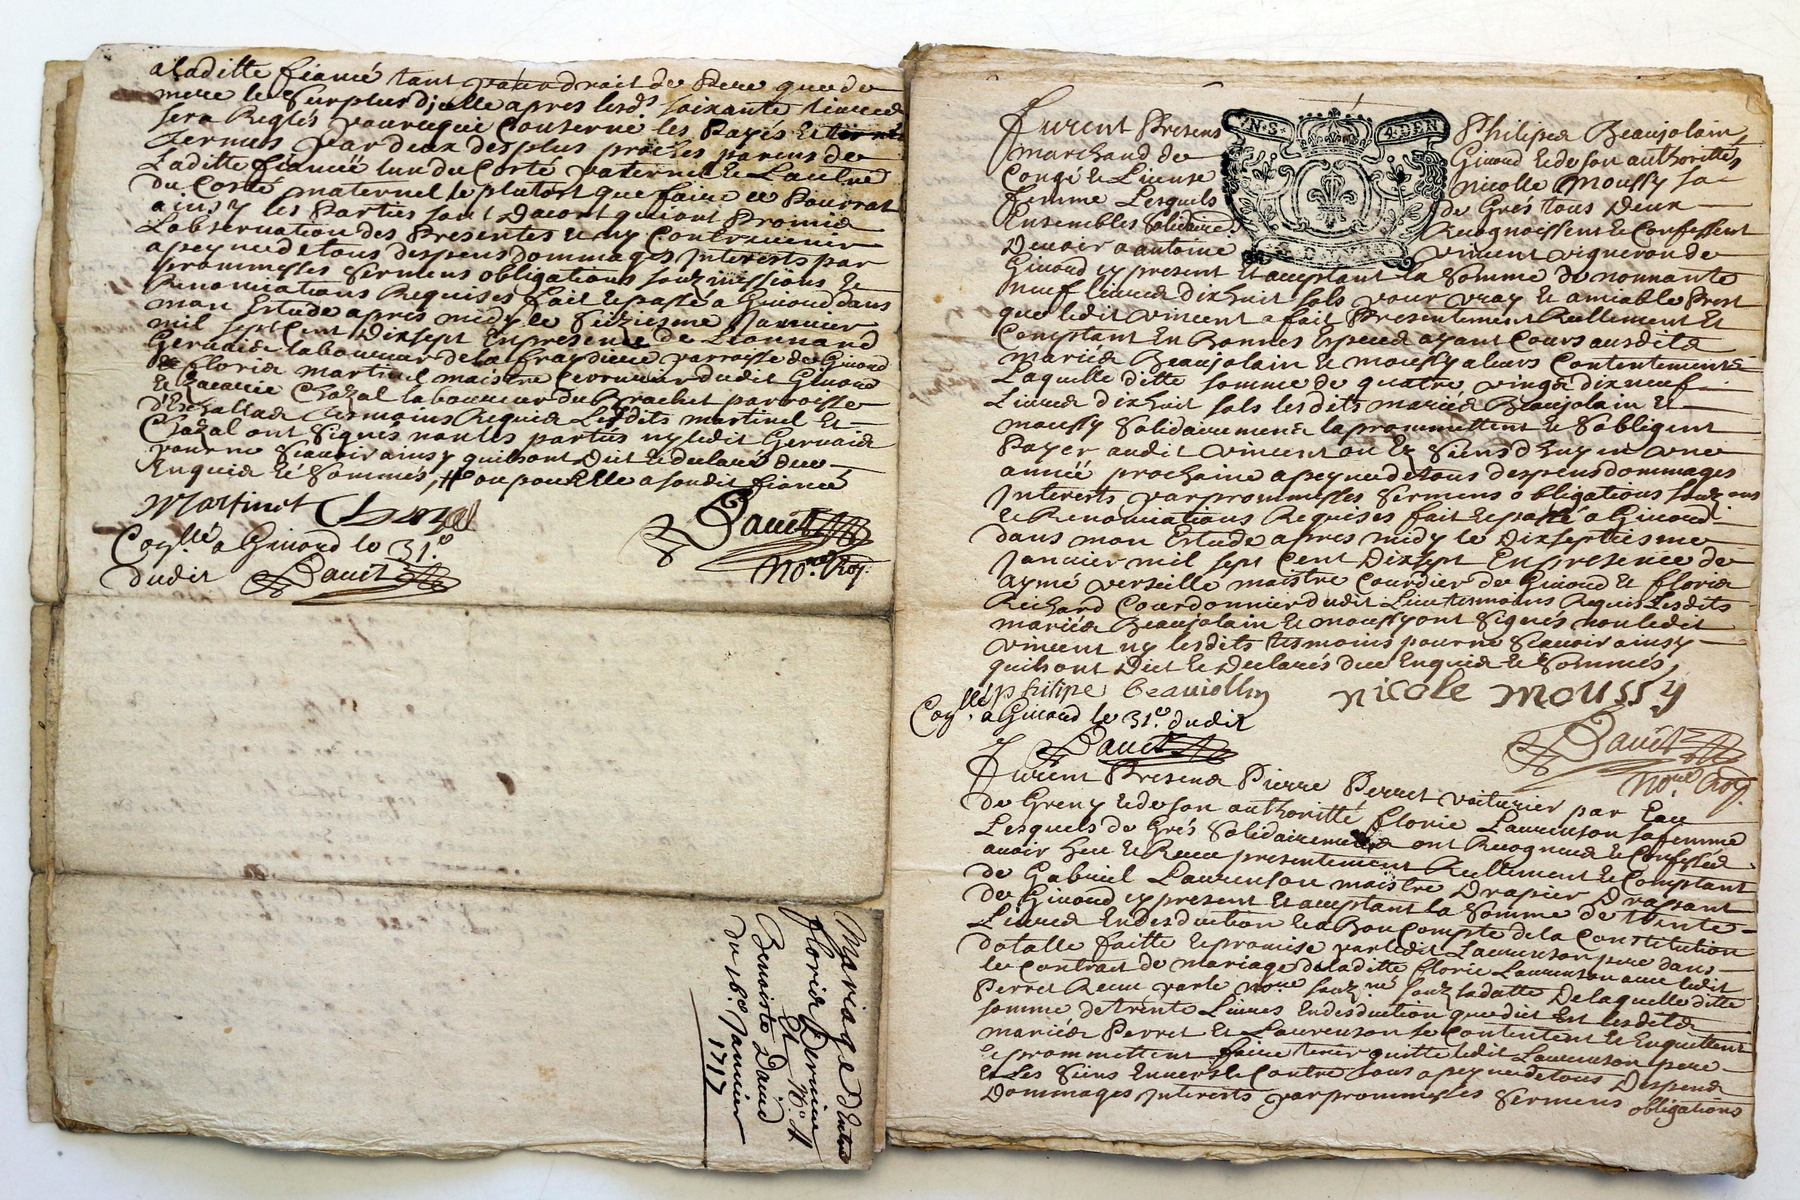 a laditte fiancé tant du droit de Pere que de
mere le surplus d'jcelle apres lesd.s soixante livres
sera Reglés pour ce qui Conserne les Payés et
Termes par deux des plus proches parens de
Laditte fiancéé lun du Costé paternel & Laultre
du Costé maternel le plutost que faire ce Pourrat
ainsy les Parties sont Dacort qui ont Promis
Lobservation des Presentes & ny Contrevenir
a peyne de tous despens dommages Interests par
prommesses sermens obligations souzmissions &
Renonciations Requises fait & passé a Givord dans
mon Estude apres midy le seiziesme Janvier
mil sept Cent Dixsept En presence de Leonnard
Gervais laboureur de la parroisse de Givord
de Floris martinel maistre dudit Givord
Et Chazal laboureur du Brachet parroisse
d'Eschallas tesmoins Requis Lesdits martinel Et
Chazal ont signés non les parties ny ledit Gervais
pour ne scavoir ainsy quils ont Dit & declaré de ce
Enquis & sommés, ou pour Elle a sondit fiancé
Martinel
Coll.llé a Givord le 31.e
dudit
No.re Roy.
Mariage d'Entre
Floris
Et
Benoiste David
du 16.e Janvier
1717
YN.S. 4.DEN
Furent Presens Philipes Beaujolain
marchand de Givord & de son authorittés
Congé & License nicolle Moussy sa
femme Lesquels de Grés tous Deux
Ensembles solidaires Recognoissent & Confessent
Devoir a antoine vincent vigneron de
Givord cy present Et acceptant la somme de nonnante
neuf livres dixhuit sols pour vray & amiable Prest
que ledit vincent a fait Presentement Reellement Et
Comptant En Bonnes Especes ayant Cours ausdits
mariés Beaujolain & moussy a leurs Contentements
Laquelle ditte somme de quatre vingts dix neuf
Livres dixhuit sols lesdits mariés Beaujolain Et
moussy solidairement la prommettent & sobligent
Payer audit vincent ou Es siens d'huy en une
année prochaine a peyne de tous despens dommages
Interests par prommesses sermens obligations
& Renonciations Requises fait & passé a Givord
dans mon Estude apres midy le Dixseptiesme
Janvier mil sept Cent Dixsept En presence de
aymé verseille maistre Courdier de Givord Et floris
Richard Courdonnier dudit Lieu tesmoins Requis Lesdits
mariés Beaujolain & moussy ont signés non ledit
vincent ny lesdits tesmoins pour ne scavoir ainsy
quils ont Dict & Declarés de ce Enquis & sommés,
philipe beaujollin nicole moussy
Coll.llé a Givord le 31.e dudit
No.re Roy.
Furent Presens Pierre Perret voiturier par Eau
de Greny & de son authoritté florie Laurenson sa femme
Lesquels de Grés solidairement ont Recognus & Confessés
avoir heu & Receu presentement Reellement & Comptant
de Gabriel Laurenson maistre Drapier Drapant
de Givord cy present Et acceptant la somme de trente
Livres En desduction & a Bon Compte de la Constitution
dotalle faitte & promise par ledit Laurenson pere dans
le Contrat de mariage de laditte florie Laurenson avec ledit
Perret Receu par le no.re souz.né souz sa datte De laquelle ditte
somme de trente Livres En desduction que dit Est lesdits
mariés Perret Et Laurenson se Contentent & En quittent
& prommettent faire tenir quitte ledit Laurenson pere
Et Les siens Envers & Contre tous a peyne de tous Despens
Dommages Interests par prommesses sermens obligations